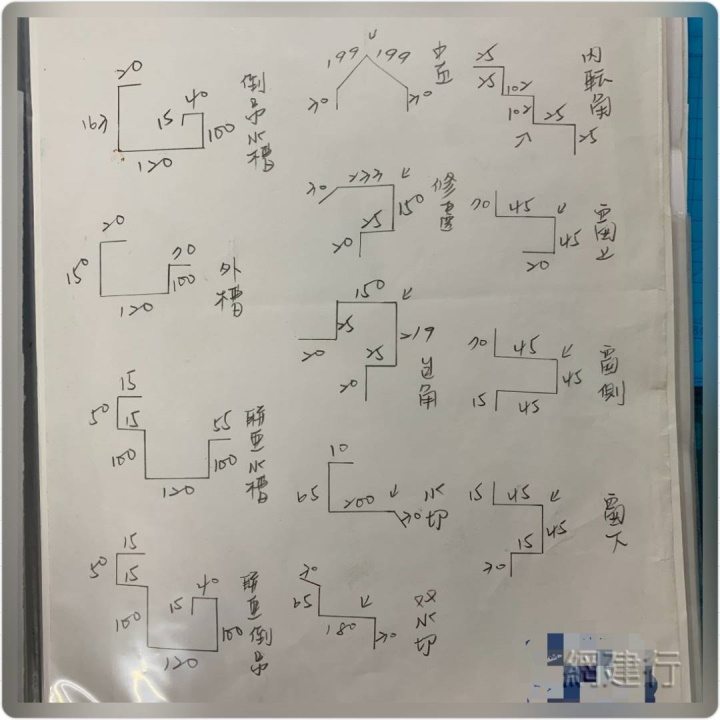 20
163
15
40
100
120
倒吊水槽
20
150
20
100
120
外槽
15
50
15
55
100
100
120
聯亜水槽
15
50
15
40
15
100
100
120
聯亜倒吊
199
199
20
20
中亜
20
233
150
25
20
修邊
150
25
219
25
20
20
边角
10
65
200
20
水切
20
65
180
20
双水切
25
25
102
102
25
25
内転角
20
45
45
20
窗上
20
45
45
15
45
窗側
15
45
45
15
20
窗下
網建行